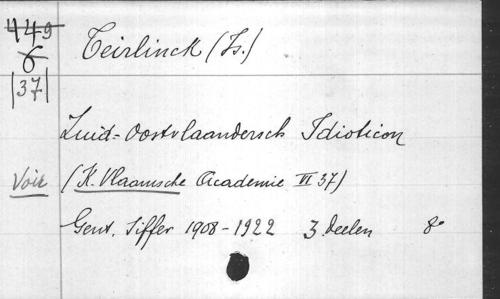 449
6
|37|
Teirlinck (Is.)
Zuid-Oostvlaandersch Idioticon
Voir
(K. Vlaamsche Academie VI 37)
Gent, Siffer 1908-1922 3 deelen 8°